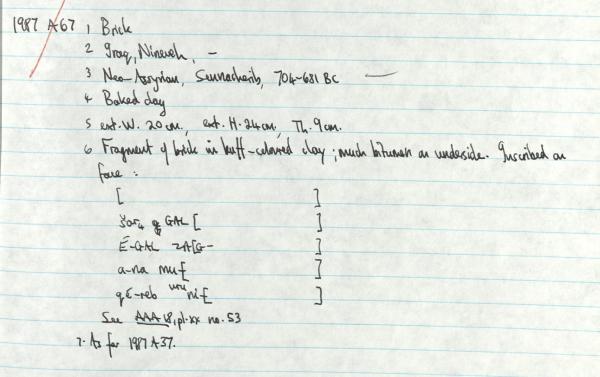 1987 A67 1 Brick
2 Iraq, Nineveh, -
3 Neo-Assyrian, Sennacherib, 704-681 BC
4 Baked clay
5 ext. W. 20cm., ext. H. 24cm, Th. 9cm.
6 Fragment of brick in buff-coloured clay; much bitumen on underside. Inscribed on
face :
[ ]
šar₄ GAL [ ]
É-GAL ZA[G- ]
a-na mu-[ ]
qé-reb ᵘʳᵘni-[ ]
See AAA 18, pl. xx no. 53
7. As for 1987 A37.